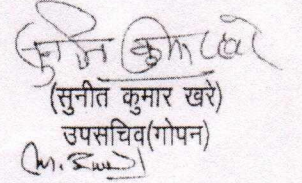 सुनीत कुमार खरे
(सुनीत कुमार खरे)
उपसचिव(गोपन)